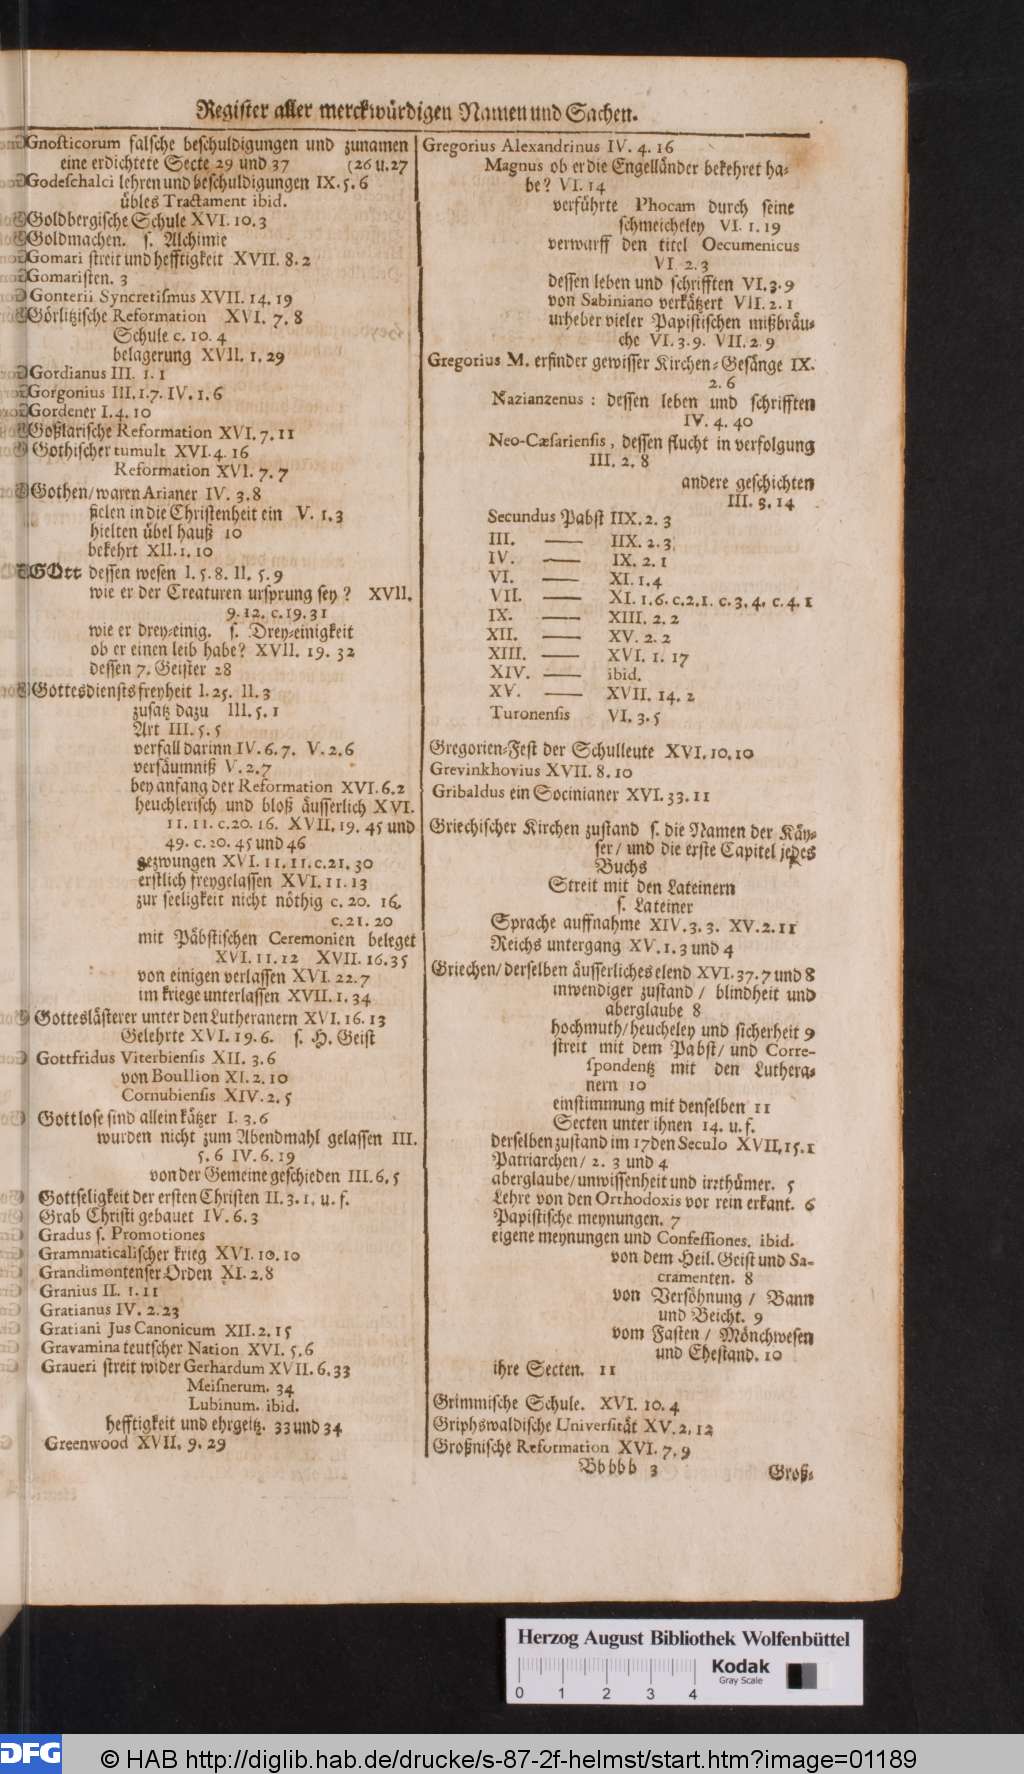 Register aller merckwürdigen Namen und Sachen.
Gnosticorum falsche beschuldigungen und zunamen
eine erdichtete Secte 29 und 37 (26 u. 27
Godeschalci lehren und beschuldigungen IX. 5. 6
übles Tractament ibid.
Goldbergische Schule XVI. 10. 3
Goldmachen. s. Alchimie
Gomari streit und hefftigkeit XVII. 8. 2
Gomaristen. 3
Gonterii Syncretismus XVII. 14. 19
Görlitzische Reformation XVI. 7. 8
Schule c. 10. 4
belagerung XVII. 1. 29
Gordianus III. 1. 1
Gorgonius III. 1. 7. IV. 1. 6
Gordener I. 4. 10
Goßlarische Reformation XVI. 7. 11
Gothischer tumult XVI. 4. 16
Reformation XVI. 7. 7
Gothen/ waren Arianer IV. 3. 8
fielen in die Christenheit ein V. 1. 3
hielten übel hauß 10
bekehrt XII. 1. 10
GOtt dessen wesen I. 5. 8. II. 5. 9
wie er der Creaturen ursprung sey? XVII.
9. 12. c. 19. 31
wie er drey-einig. s. Drey-einigkeit
ob er einen leib habe? XVII. 19. 32
dessen 7. Geister 28
Gottesdiensts freyheit I. 25. II. 3
zusatz dazu III. 5. 1
Art III. 5. 5
verfall darinn IV. 6. 7. V. 2. 6
versäumniß V. 2. 7
bey anfang der Reformation XVI. 6. 2
heuchlerisch und bloß äusserlich XVI.
11. 11. c. 20. 16. XVII. 19. 45 und
49. c. 20. 45 und 46
gezwungen XVI. 11. 11. c. 21. 30
erstlich freygelassen XVI. 11. 13
zur seeligkeit nicht nöthig c. 20. 16.
c. 21. 20
mit Päbstischen Ceremonien beleget
XVI. 11. 12 XVII. 16. 35
von einigen verlassen XVI. 22. 7
im kriege unterlassen XVII. 1. 34
Gotteslästerer unter den Lutheranern XVI. 16. 13
Gelehrte XVI. 19. 6. s. H. Geist
Gottfridus Viterbiensis XII. 3. 6
von Boullion XI. 2. 10
Cornubiensis XIV. 2. 5
Gottlose sind allein kätzer I. 3. 6
wurden nicht zum Abendmahl gelassen III.
5. 6 IV. 6. 19
von der Gemeine geschieden III. 6. 5
Gottseligkeit der ersten Christen II. 3. 1. u. f.
Grab Christi gebauet IV. 6. 3
Gradus s. Promotiones
Grammaticalischer krieg XVI. 10. 10
Grandimontenser Orden XI. 2. 8
Granius II. 1. 11
Gratianus IV. 2. 23
Gratiani Jus Canonicum XII. 2. 15
Gravamina teutscher Nation XVI. 5. 6
Graueri streit wider Gerhardum XVII. 6. 33
Meisnerum. 34
Lubinum. ibid.
hefftigkeit und ehrgeitz. 33 und 34
Greenwood XVII. 9. 29
Gregorius Alexandrinus IV. 4. 16
Magnus ob er die Engelländer bekehret ha-
be? VI. 14
verführte Phocam durch seine
schmeicheley VI. 1. 19
verwarff den titel Oecumenicus
VI. 2. 3
dessen leben und schrifften VI. 3. 9
von Sabiniano verkätzert VII. 2. 1
urheber vieler Papistischen mißbräu-
che VI. 3. 9. VII. 2. 9
Gregorius M. erfinder gewisser Kirchen-Gesänge IX.
2. 6
Nazianzenus: dessen leben und schrifften
IV. 4. 40
Neo-Cæsariensis, dessen flucht in verfolgung
III. 2. 8
andere geschichten
III. 3. 14
Secundus Pabst IIX. 2. 3
III. —— IIX. 2. 3.
IV. —— IX. 2. 1
VI. —— XI. 1. 4
VII. —— XI. 1. 6. c. 2. 1. c. 3. 4. c. 4. 1
IX. —— XIII. 2. 2
XII. —— XV. 2. 2
XIII. —— XVI. 1. 17
XIV. —— ibid.
XV. —— XVII. 14. 2
Turonensis VI. 3. 5
Gregorien-Fest der Schulleute XVI. 10. 10
Grevinkhovius XVII. 8. 10
Gribaldus ein Socinianer XVI. 33. 11
Griechischer Kirchen zustand s. die Namen der Käy-
ser/ und die erste Capitel jedes
Buchs
Streit mit den Lateinern
s. Lateiner
Sprache auffnahme XIV. 3. 3. XV. 2. 11
Reichs untergang XV. 1. 3 und 4
Griechen/ derselben äusserliches elend XVI. 37. 7 und 8
inwendiger zustand/ blindheit und
aberglaube 8
hochmuth/ heucheley und sicherheit 9
streit mit dem Pabst/ und Corre-
spondentz mit den Luthera-
nern 10
einstimmung mit denselben 11
Secten unter ihnen 14. u. f.
derselben zustand im 17den Seculo XVII. 15. 1
Patriarchen/ 2. 3 und 4
aberglaube/ unwissenheit und irrthümer. 5
Lehre von den Orthodoxis vor rein erkant. 6
Papistische meynungen. 7
eigene meynungen und Confessiones. ibid.
von dem Heil. Geist und Sa-
cramenten. 8
von Versöhnung/ Bann
und Beicht. 9
vom Fasten/ Mönchwesen
und Ehestand. 10
ihre Secten. 11
Grimmische Schule. XVI. 10. 4
Griphswaldische Universität XV. 2. 12
Großnische Reformation XVI. 7. 9
Bbbbb 3
Groß-
Herzog August Bibliothek Wolfenbüttel
Kodak
Gray Scale
0 1 2 3 4
DFG
© HAB http://diglib.hab.de/drucke/s-87-2f-helmst/start.htm?image=01189